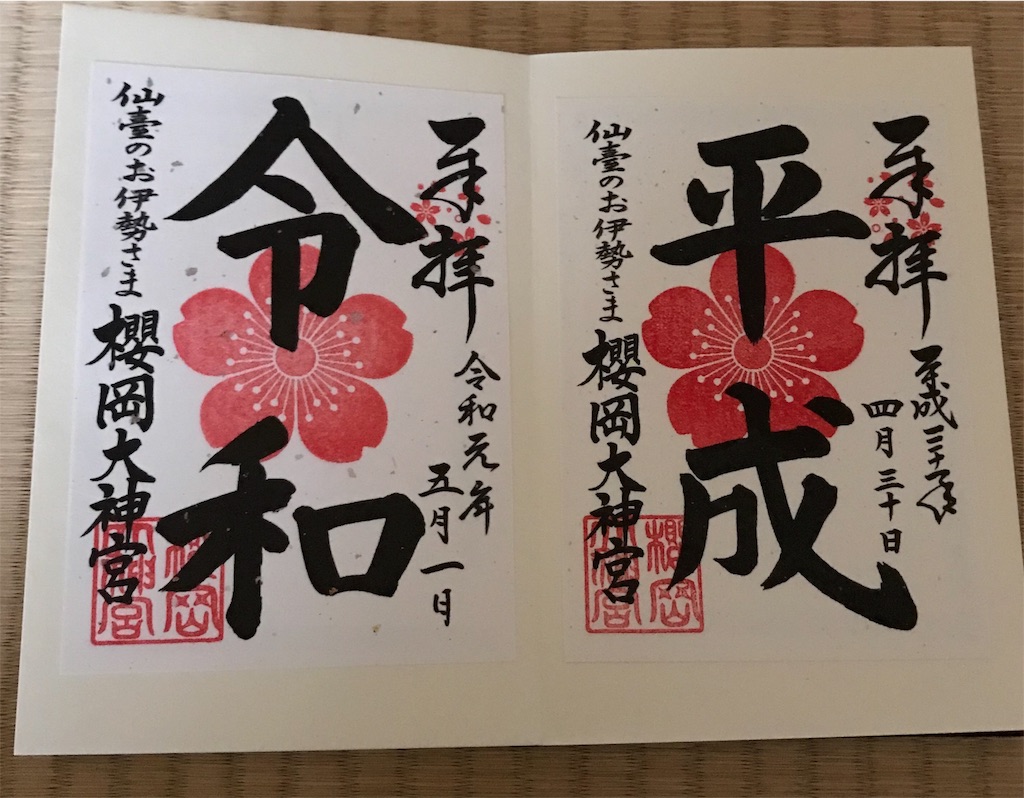 奉拝
平成三十一年
四月三十日
平成
仙臺のお伊勢さま
櫻岡大神宮
櫻岡大神宮
奉拝
令和元年
五月一日
令和
仙臺のお伊勢さま
櫻岡大神宮
櫻岡大神宮